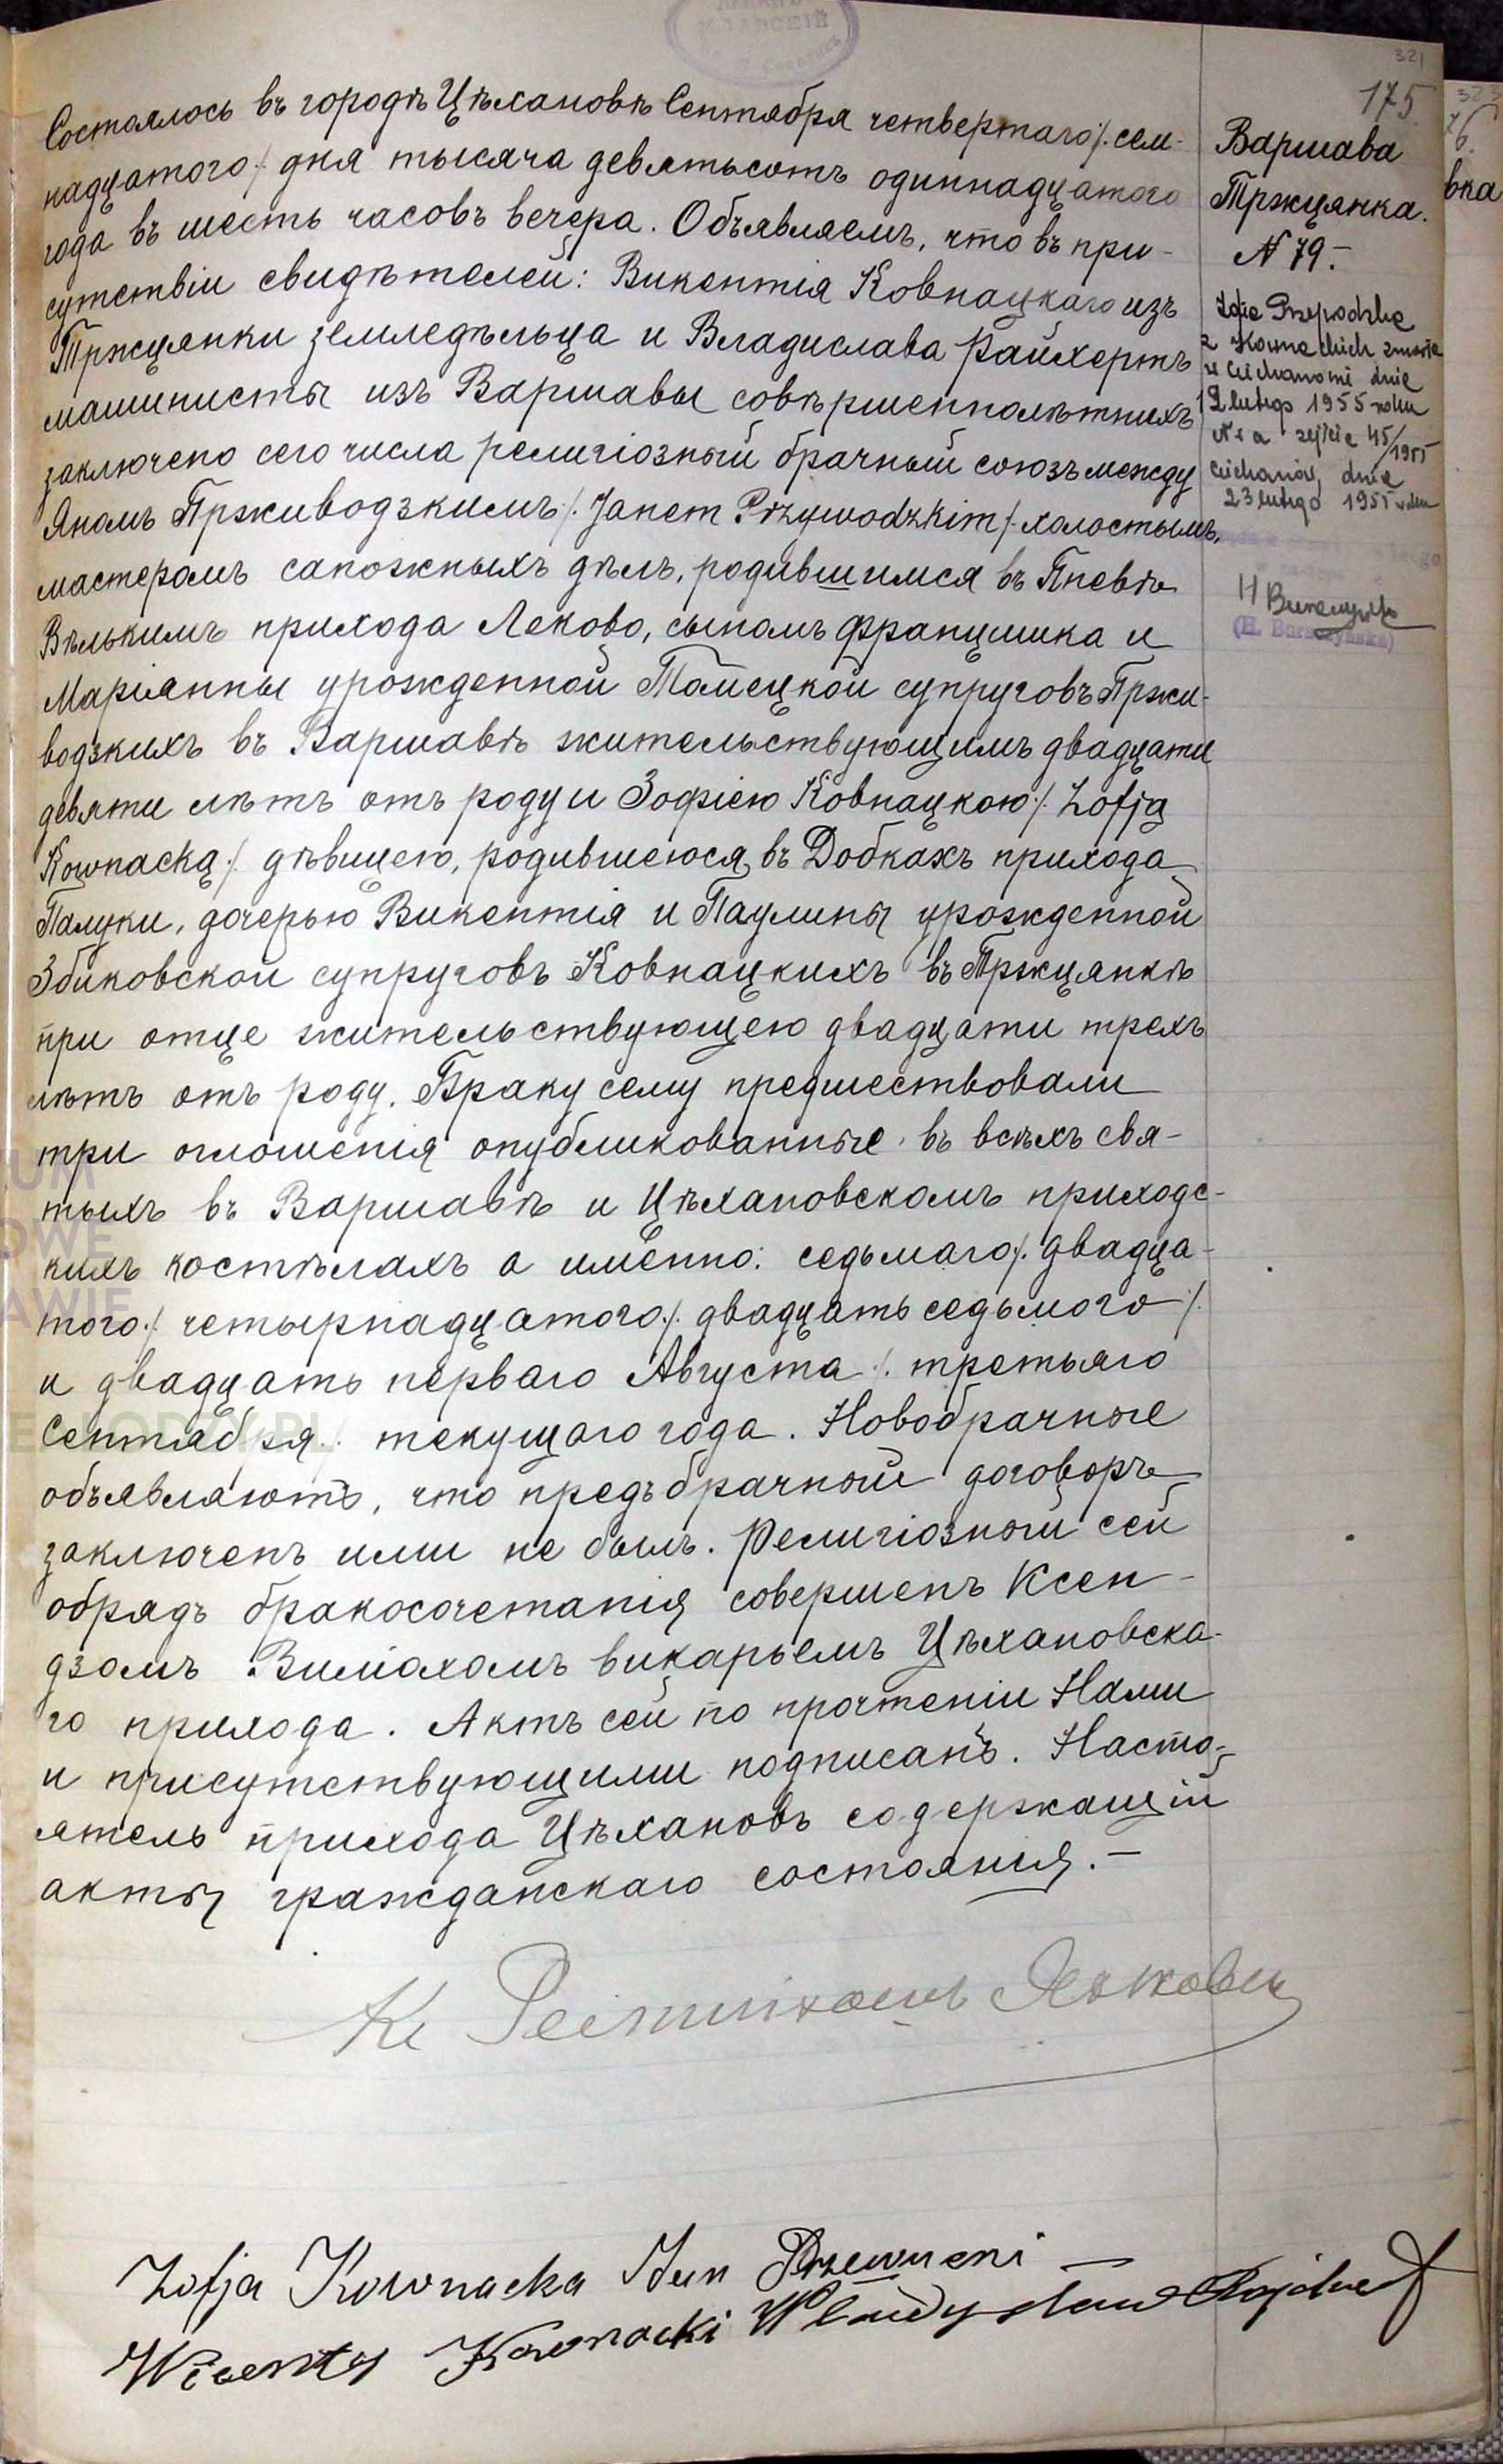 321
175.
Варшава
Тржцянка.
N 79.-
Состоялось въ городѣ Цѣхановѣ Сентября четвертаго /. сем-
надцатого ./ дня тысяча девятьсотъ одиннадцатого
года въ шесть часовъ вечера. Объявляемъ, что въ при-
сутствіи свидѣтелей: Викентія Ковнацкаго изъ
Тржцянки земледѣльца и Владислава Райхертъ
машинисты изъ Варшавы совѣршеннолѣтнихъ
заключено сего числа религіозный брачный союзъ между
Яномъ Прживодзкимъ /. Janem Przywodzkim ./ холостымъ,
мастеромъ сапожныхъ дѣлъ, родившимся въ Пневѣ
Вѣлькимъ прихода Леково, сыномъ Францишка и
Маріянны урожденной Томецкой супруговъ Пржи-
водзкихъ въ Варшавѣ жительствующимъ двадцати
девяти лѣтъ отъ роду и Зофіею Ковнацкою /. Zofją
Kownacką ./ дѣвицею, родившеюся въ Добкахъ прихода
Палуки, дочерью Викентія и Паулины урожденной
Збиковской супруговъ Ковнацкихъ въ Тржцянкѣ
при отце жительствующею двадцати трехъ
лѣтъ отъ роду. Браку сему предшествовали
три оглошенія опубликованные въ всѣхъ свя-
тыхъ въ Варшавѣ и Цѣхановскомъ приходс-
кихъ костѣлахъ а именно: седьмаго /. двадца-
того ./ четырнадцатого /. двадцать седьмого ./
и двадцать перваго Августа /. третьяго
Сентября ./ текущаго года. Новобрачные
объявляютъ, что предъбрачный договоръ
заключенъ ими не былъ. Религіозный сей
обрядъ бракосочетанія совершенъ Ксен-
дзомъ Виміохомъ викарьемъ Цѣхановска-
го прихода. Актъ сей по прочтеніи Нами
и присутствующими подписанъ. Насто-
ятель прихода Цѣхановъ содержащій
акты гражданскаго состоянія.-
2 Kownackich zmarła
w Ciechanowie dnia
12 lutego 1955 roku
Nr a zejścia 45/1955
Ciechanów, dnia
23 lutego 1955 roku
Zofja Kownacka Jan
Wicenty Kownacki Władysław Rajchert
323
76.
вка